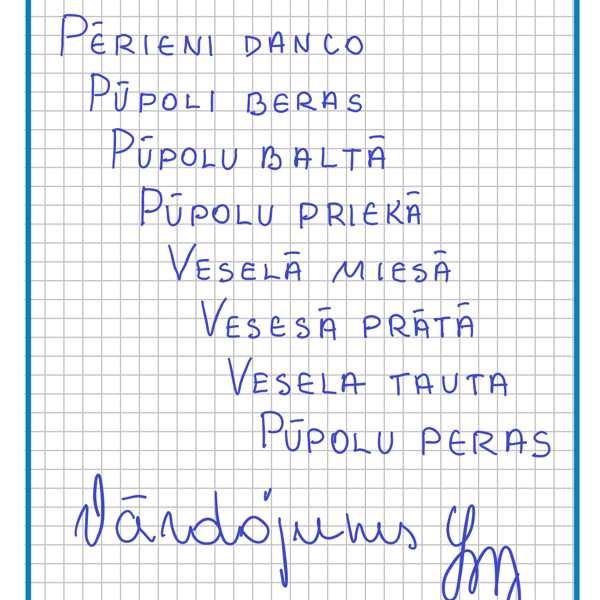 PĒRIENI DANCO
PŪPOLI BERAS
PŪPOLU BALTĀ
PŪPOLU PRIEKĀ
VESELĀ MIESĀ
VESESĀ PRĀTĀ
VESELA TAUTA
PŪPOLU PERAS
Vārdojums